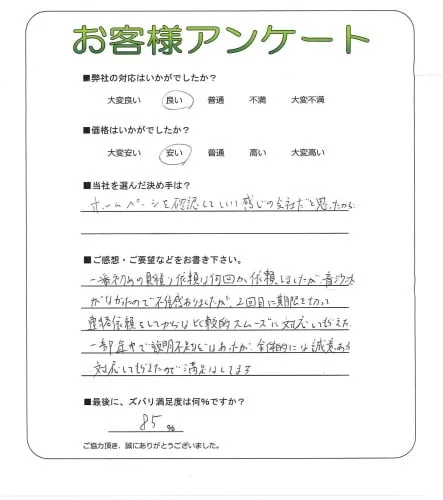 お客様アンケート
■弊社の対応はいかがでしたか？
大変良い　良い　普通　不満　大変不満
■価格はいかがでしたか？
大変安い　安い　普通　高い　大変高い
■当社を選んだ決め手は？
ホームページを確認していい感じの会社だと思ったから
■ご感想・ご要望などをお書き下さい。
一番初めの見積り依頼は何回か依頼しましたが音沙汰
がなかったので不信感ありましたが、2回目に期限を切って
見積依頼をしてからは比較的スムーズに対応してもらえた
一部途中で説明不足などはあったが、全体的には誠意ある
対応してもらえたので満足はしてます
■最後に、ズバリ満足度は何％ですか？
85 %
ご協力頂き、誠にありがとうございました。